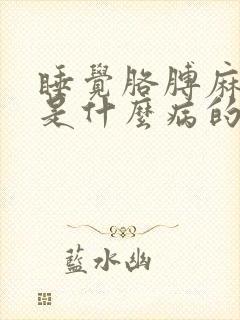 睡覺胳膊麻
是什麼病的
藍水幽